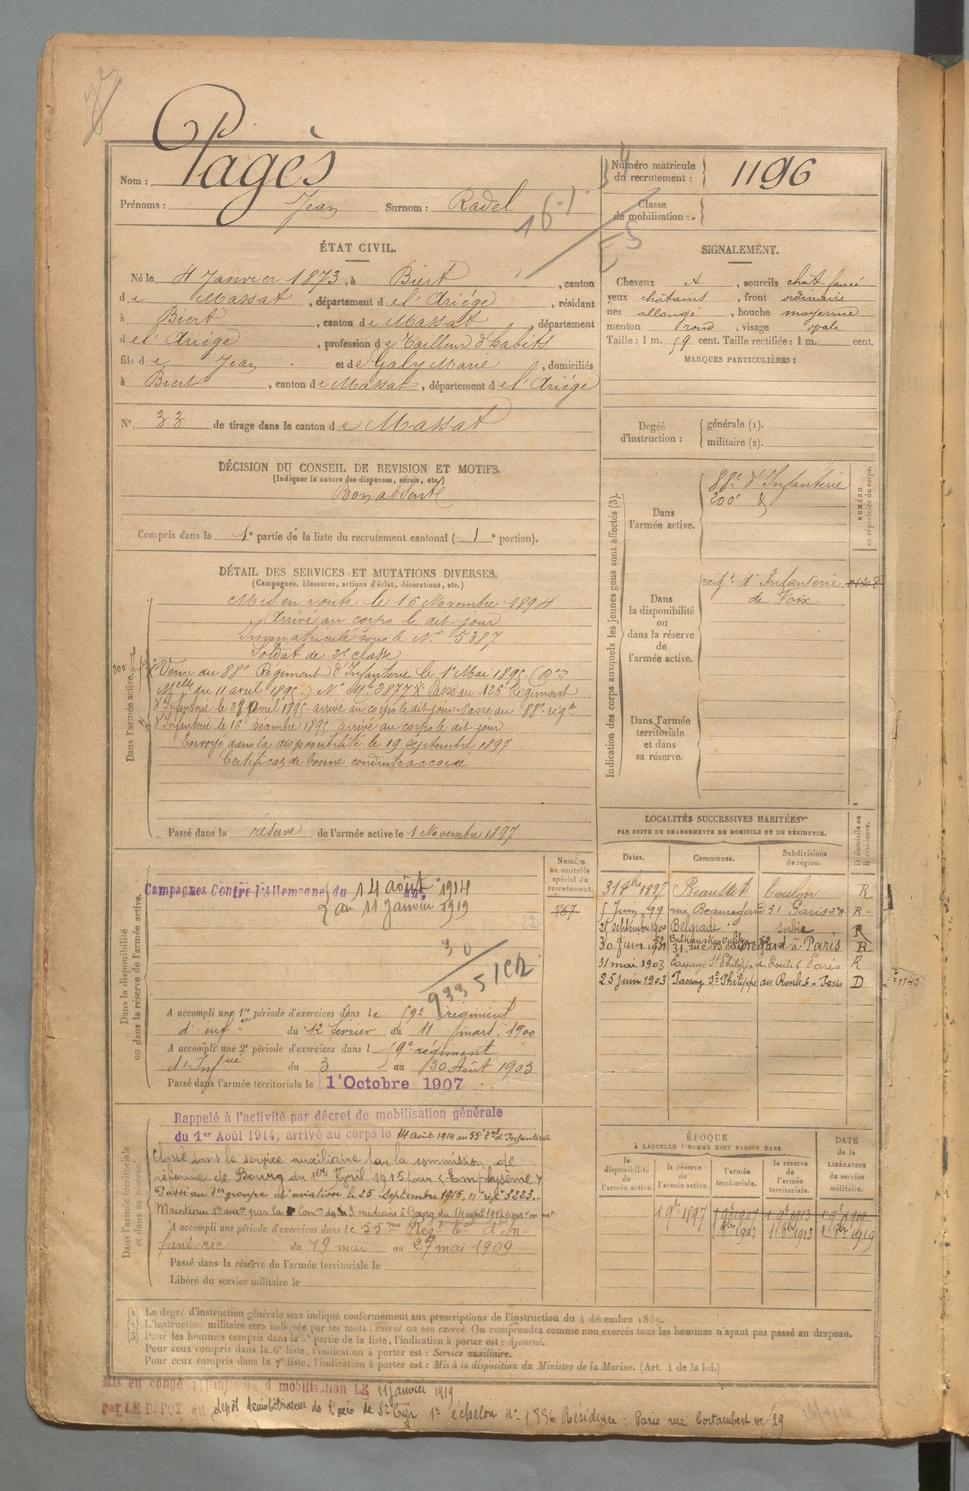 Nom : Pagès
Prénoms : Jean Surnom : Radel
Numéro matricule du recrutement : 1196
Classe de mobilisation :
ÉTAT CIVIL.
Né le 4 Janvier 1873, à Biert, canton
de Massat, département de l'Ariége, résidant
à Biert, canton de Massat, département
de l'Ariége, profession de Tailleur d'habits
fils de Jean et de Galy Marie, domiciliés
à Biert, canton de Massat, département de l'Ariége
N° 33 de tirage dans le canton de Massat
SIGNALEMENT.
Cheveux et, sourcils chat. foncé
yeux châtains, front ordinaire
nez allongé, bouche moyenne
menton rond, visage ovale
Taille : 1 m. 59 cent. Taille rectifiée : 1 m. cent.
MARQUES PARTICULIÈRES :
Degré d'instruction : générale (1).
militaire (2).
DÉCISION DU CONSEIL DE REVISION ET MOTIFS.
(Indiquer la nature des dispenses, sursis, etc.)
Bon absent
Compris dans la 1e partie de la liste du recrutement cantonal ( 1e portion).
DÉTAIL DES SERVICES ET MUTATIONS DIVERSES.
(Campagnes, blessures, actions d'éclat, décorations, etc.)
Dans l'armée active.
Mis en route le 16 Novembre 1894
Arrivé au corps le dit jour
Immatriculé sous le N° 5387
Soldat de 2e classe
Venu du 88e Régiment d'Infanterie le 1er Mai 1895 (Don
Melle du 11 avril 1895.) N° Mle 3877 Passé au 126e Régiment
d'Infanterie le avril 1895. arrivé au corps le dit jour. Passé au 88e régt
d'Infanterie le 16 1895 arrivé au corps le dit jour
Envoyé dans la disponibilité le 19 septembre 1897
Certificat de bonne conduite accordé
Passé dans la réserve de l'armée active le 1 Novembre 1897
Indication des corps auxquels les jeunes gens sont affectés (3).
NUMÉRO au répertoire du corps.
Dans l'armée active.
88e d'Infanterie
Dans la disponibilité ou dans la réserve de l'armée active.
régt d'Infanterie
de Foix
Dans l'armée territoriale et dans sa réserve.
LOCALITÉS SUCCESSIVES HABITÉES
PAR SUITE DE CHANGEMENTS DE DOMICILE OU DE RÉSIDENCE.
Dates. Communes. Subdivisions de région. D domicile ou R résidence.
31 8bre 1897 Beausset Toulon R
5 Juin 99 rue Beauregard 31 Paris R
septembre 1900 Belgrade Serbie R
30 Juin 1901 31, rue Beauregard à Paris R
31 mai 1903 Passage St Philippe du Roule 6 Paris R
25 juin 1903 Passage St Philippe du Roule 6 - Paris D
Numéro au contrôle spécial du recrutement.
867
Dans la disponibilité ou dans la réserve de l'armée active.
Campagnes Contre l'Allemagne du 14 août 1914
au 11 Janvier 1919
A accompli une 1re période d'exercices dans le 59e régiment
d'inf du 12 février au 11 mars 1900
A accompli une 2e période d'exercices dans l 59e régiment
d'Infrie du 3 au 30 Août 1903
Passé dans l'armée territoriale le 1er Octobre 1907
Dans l'armée territoriale et dans sa réserve.
Rappelé à l'activité par décret de mobilisation générale
du 1er Août 1914, arrivé au corps le 14 août 1914 au 55e d'Infanterie
Classé dans le service auxiliaire par la commission de
réforme de Bourg du 1er Avril 1915 pour (Emphysème)
Passé au 1er groupe d'aviation le 25 Septembre 1915, n° rég. 3223.
A accompli une période d'exercices dans le 55me Régt Tal d'In-
fanterie du 19 mai au 27 mai 1909
Passé dans la réserve de l'armée territoriale le
Libéré du service militaire le
ÉPOQUE
À LAQUELLE L'HOMME DOIT PASSER DANS
la disponibilité de l'armée active. la réserve de l'armée active. l'armée territoriale. la réserve de l'armée territoriale.
DATE de la LIBÉRATION du service militaire.
1 9bre 1897 1 9bre 1907 1 9bre 1913 1 9bre 1919
1 8bre 1907 1 8bre 1913 1 8bre 1919
(1) Le degré d'instruction générale sera indiqué conformément aux prescriptions de l'instruction du 4 décembre 1889.
(2) L'instruction militaire sera indiquée par les mots : exercé ou non exercé. On comprendra comme non exercés tous les hommes n'ayant pas passé au drapeau.
(3) Pour les hommes compris dans la 5e partie de la liste, l'indication à porter est : Ajourné.
Pour ceux compris dans la 6e liste, l'indication à porter est : Service auxiliaire.
Pour ceux compris dans la 7e liste, l'indication à porter est : Mis à la disposition du Ministre de la Marine. (Art. 4 de la loi.)
Mis en congé illimité de démobilisation LE 11 janvier 1919
par LE DÉPÔT du dépôt démobilisateur de l'aéro de St Cyr 1e échelon n° 1896 Résidence : Paris rue Cortambert 29